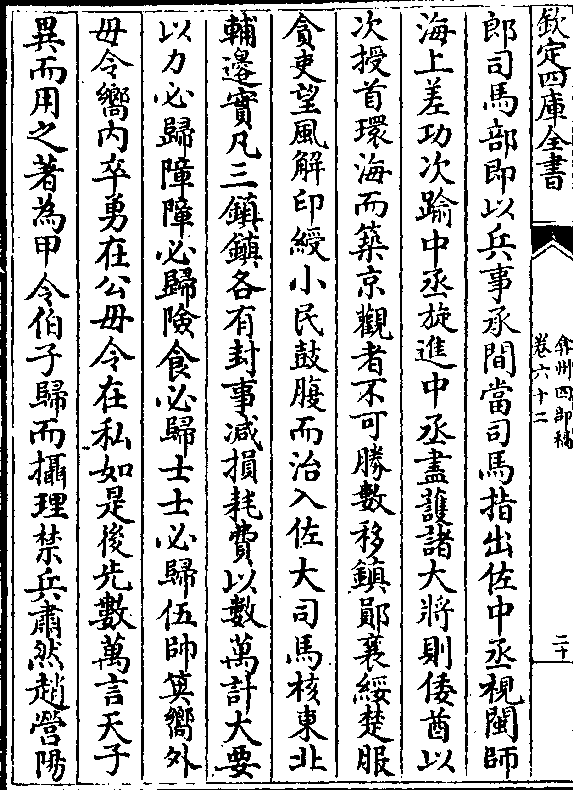 欽定四庫全書
弇州四部稿
卷六十二
二十
郎司馬部即以兵事承間當司馬指出佐中丞視閩師
海上差功次踰中丞旋進中丞盡護諸大將則倭酋以
次授首環海而築京觀者不可勝數移鎮鄖襄綏楚服
貪吏望風解印綬小民鼓腹而治入佐大司馬核東北
輔邊實凡三鎮鎮各有封事減損耗費以數萬計大要
以力必歸障障必歸險食必歸士士必歸伍帥筴嚮外
毋令嚮内卒勇在公毋令在私如是後先數萬言天子
異而用之著為甲令伯子歸而攝理禁兵肅然趙營陽